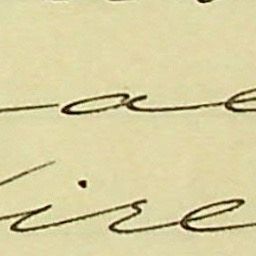 ae
ire